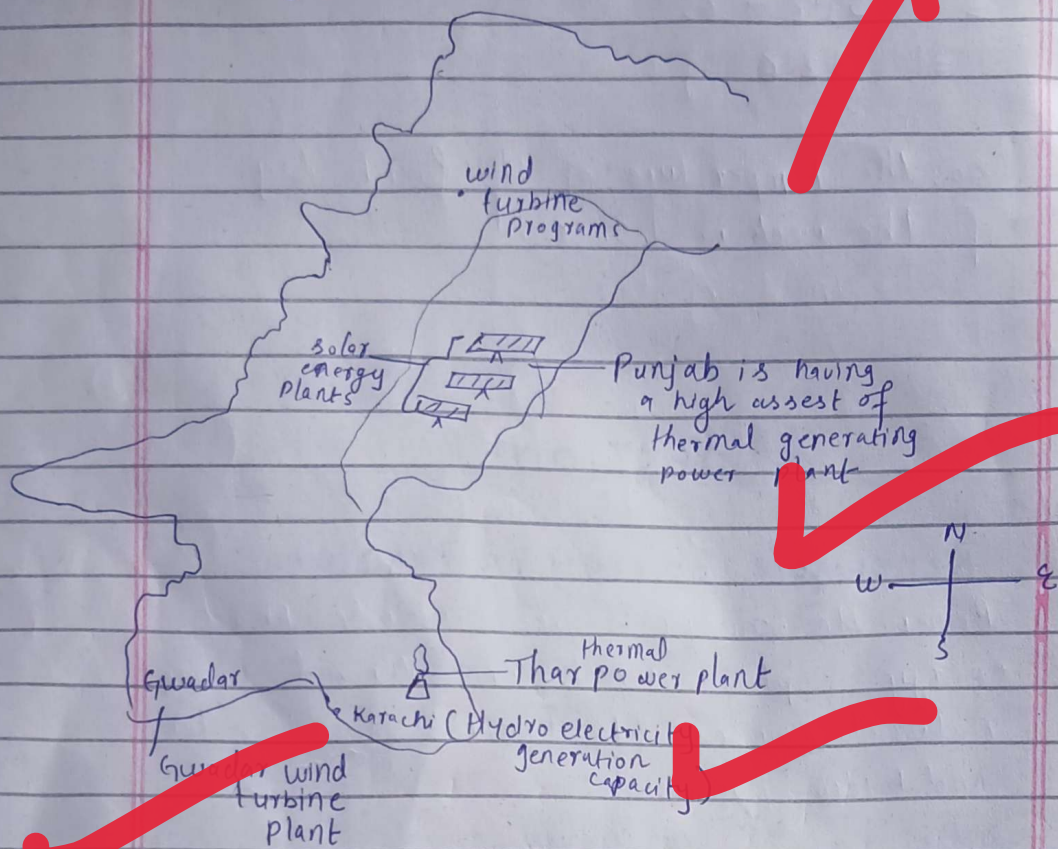 wind
turbine
programs
solar
energy
plants
Punjab is having
a high assest of
thermal generating
power plant
N
W
E
S
thermal
Thar power plant
Gwadar
Karachi (Hydro electricity
generation
capacity)
Gwadar wind
turbine
plant